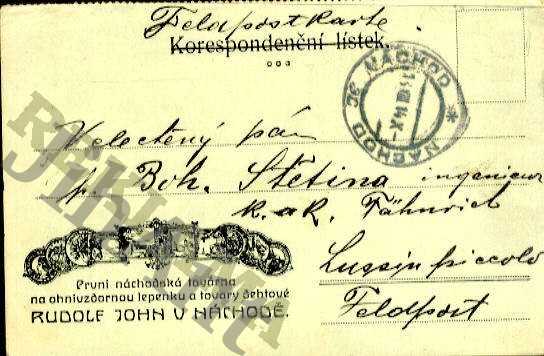 Feldpostkarte
Korespondenční lístek.
NÁCHOD
NÁCHOD
Veloctěný pán
p. Boh. Štětina ingenieur
k. u. k. Fähnrich
Lussin piccolo
Feldpost
První náchodská továrna
na ohnivzdornou lepenku a tovary dehtové
RUDOLF JOHN V NÁCHODĚ.
REKLAMA